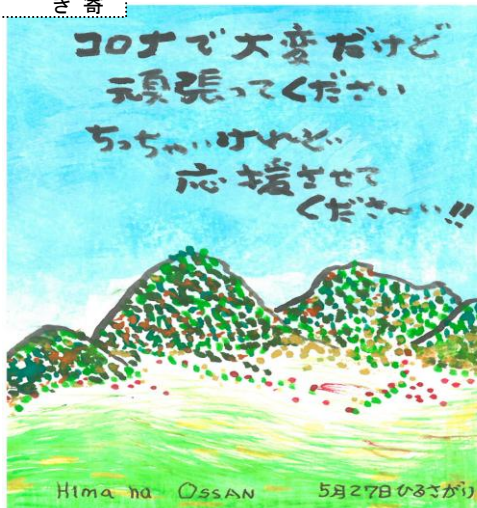 さ 寄
コロナで大変だけど
頑張ってください
ちっちゃいけれど
応援させて
くださ〜い!!
Hima na OSSAN 5月27日ひるさがり